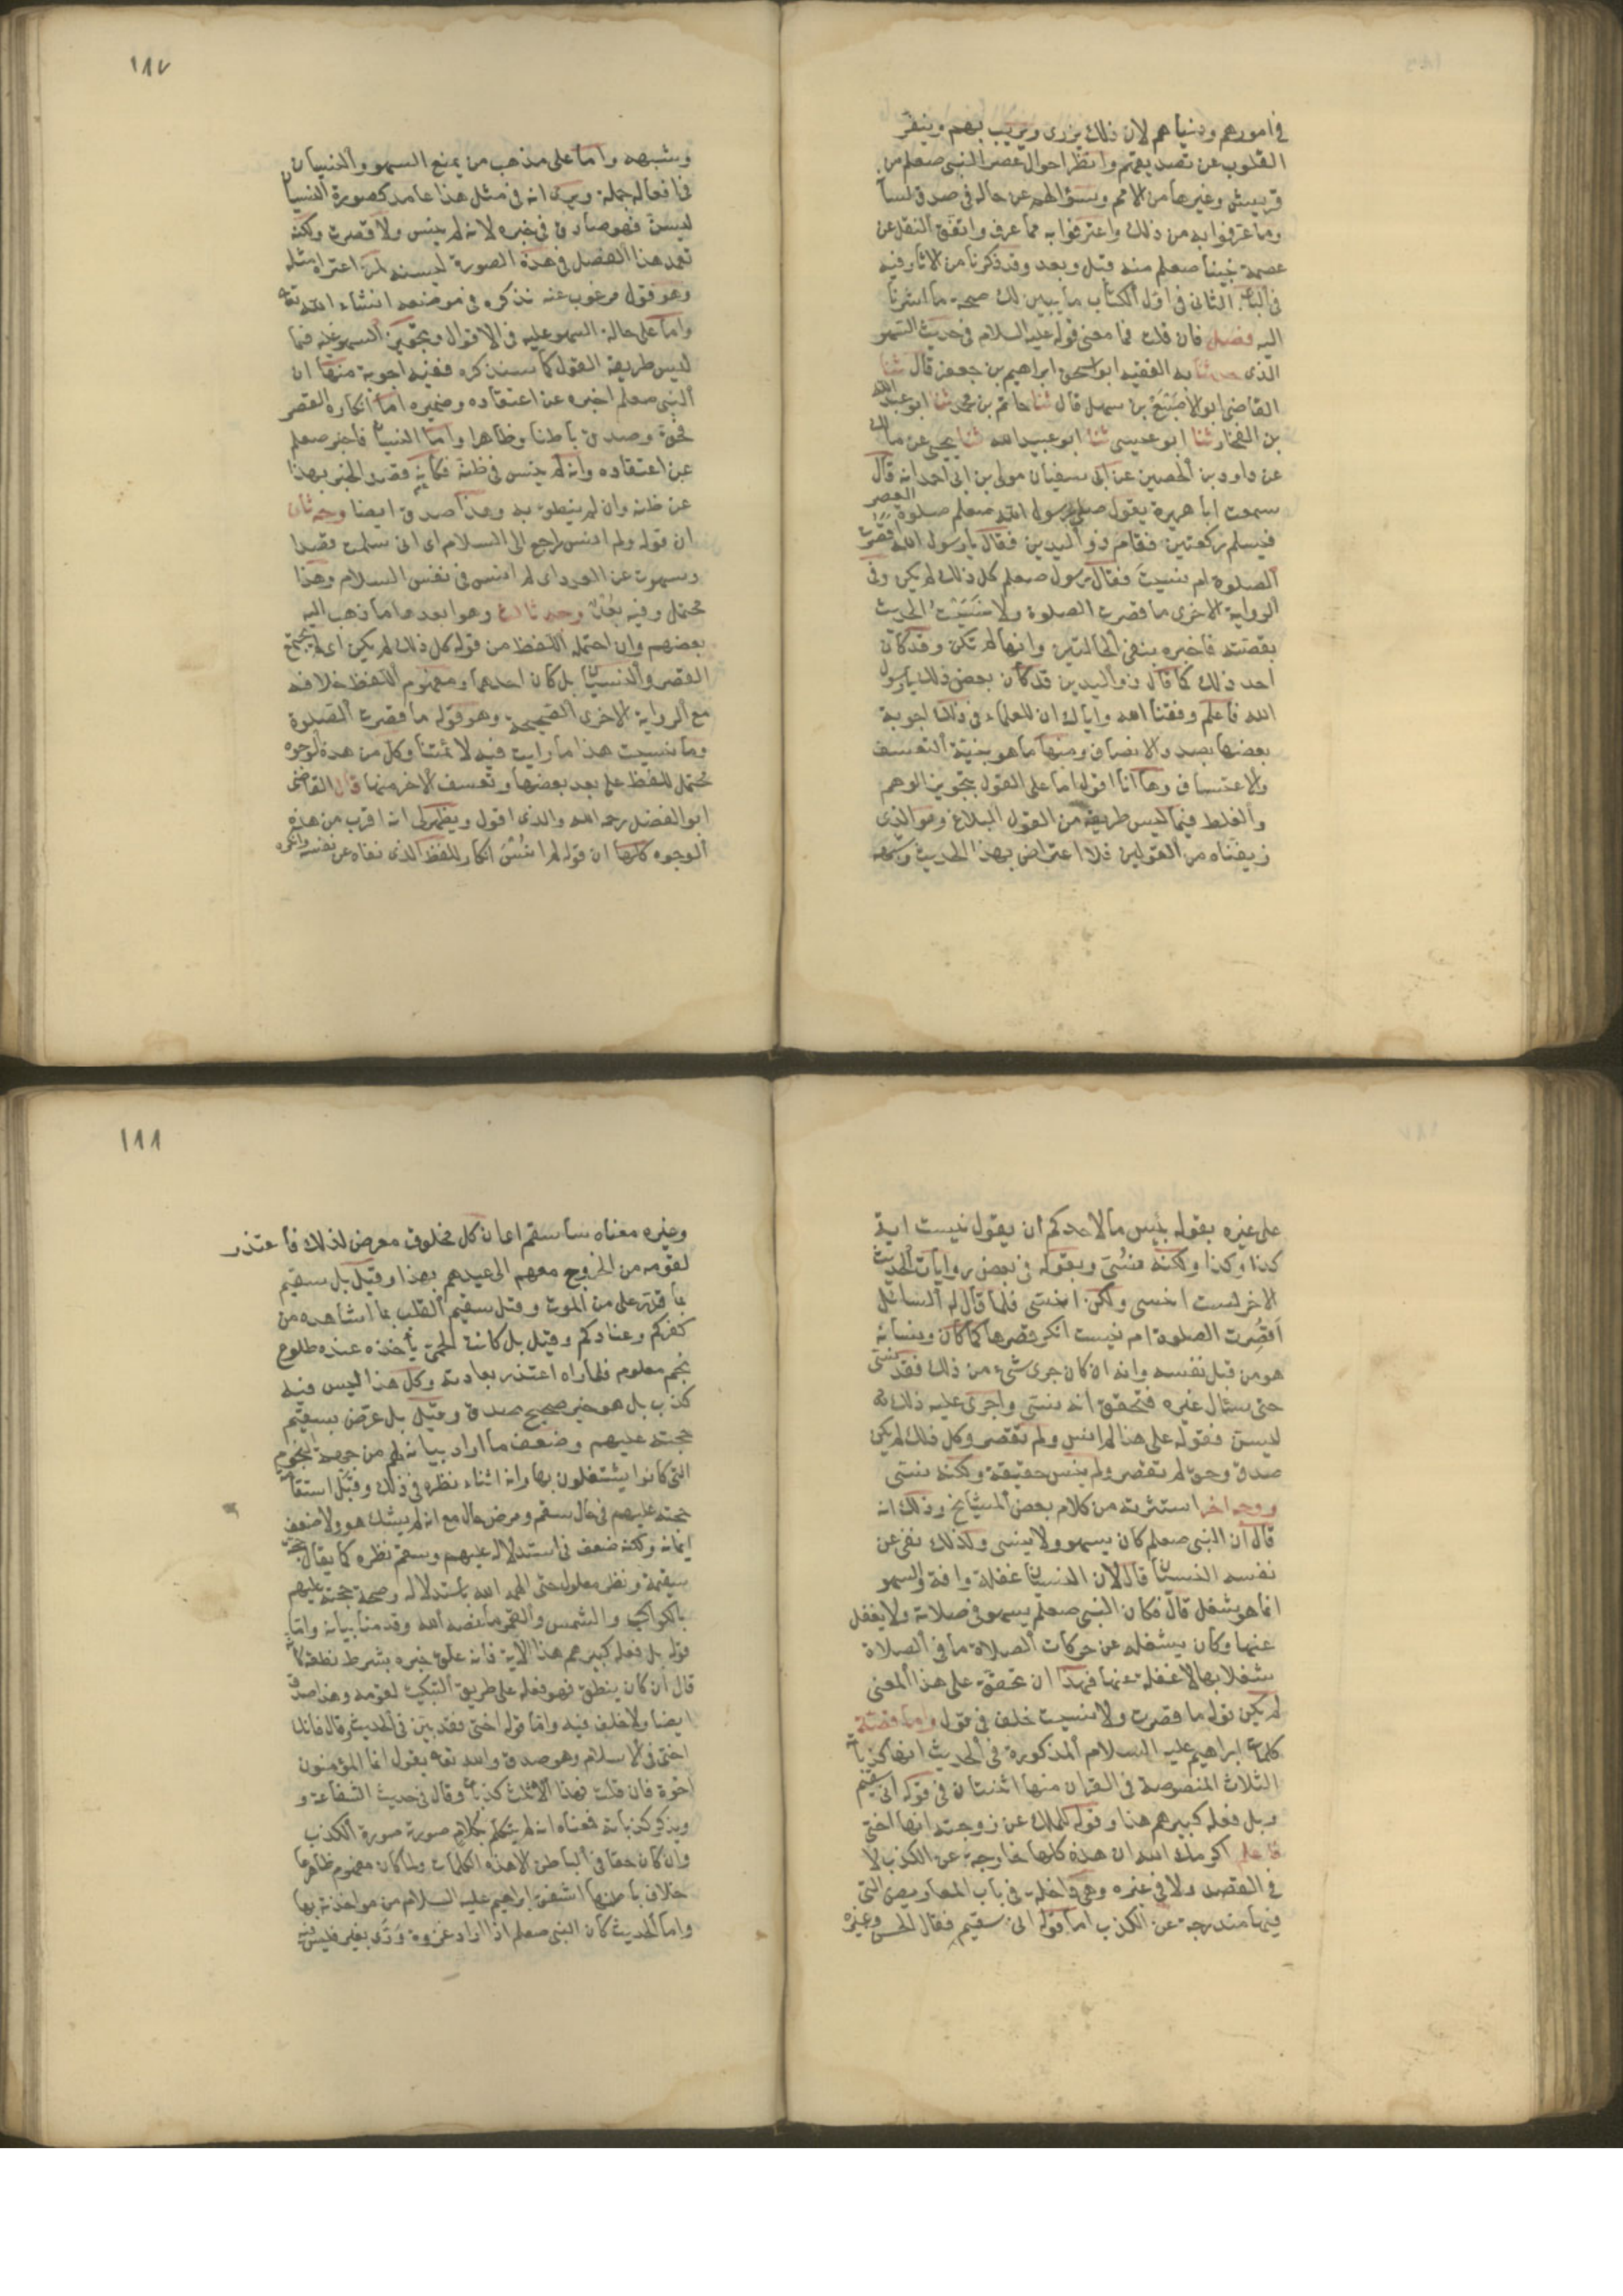 في امورهم ودنياهم لان ذلك يزرى ويريب بهم وينفر
القلوب عن تصديقهم وانظر احوال عصر النبي صعلم من
قريش وغيرها من الامم وسؤالهم عن حاله في صدق لسا
وما عرفوا به من ذلك واعترفوا به مما عرف واتفق النقل عن
عصمة نبينا صعلم منه قبل وبعد وقد ذكرنا من الاثار فيه
في الباب الثاني في اول الكتاب ما يبين لك صحة ما اشرنا
اليه فصل فان قلت فما معنى قوله عليه السلام في حديث السهو
الذي حدثنا به الفقيه ابو اسحق ابراهيم بن جعفر قال ثنا
القاضي ابو الاصبغ بن سهل قال ثنا حاتم بن محمد ثنا ابو عبد الله
بن الفخار ثنا ابو عيسى ثنا ابو عبيد الله ثنا يحيى عن مالك
عن داود بن الحصين عن ابي سفيان مولى بن ابي احمد انه قال
سمعت ابا هريرة يقول صلى رسول الله صعلم صلوة العصر
فسلم ركعتين فقام ذو اليدين فقال يا رسول الله اقصرت
الصلوة ام نسيت فقال رسول صعلم كل ذلك لم يكن وفي
الرواية الاخرى ما قصرت الصلوة ولا نسيت الحديث
بقصته فاخبره بنفي الحالتين وانها لم تكن وقد كان
احد ذلك كما قال ذو اليدين قد كان بعض ذلك يا رسول
الله فاعلم وفقنا الله واياك ان للعلماء في ذلك اجوبة
بعضها بصدد الانصاف ومنها ما هو بنية التعسف
والاعتساف وها انا اقول اما على القول بتجويز الوهم
والغلط فيما ليس طريقه من القول البلاغ وهو الذي
زيفناه من القولين فلا اعتراض بهذا الحديث وشبهه
١٨٧
وشبهه واما على مذهب من يمنع السهو والنسيان
في افعاله جملة ويرى انه في مثل هذا عامد كصورة النسيان
ليسن فهو صادق في خبره لانه لم ينس ولا قصرت ولكنه
تعمد هذا الفعل في هذه الصورة ليسنه لمن اعتراه مثله
وهو قول مرغوب عنه نذكره في موضعه انشاء الله تعه
واما على حالة السهو عليه في الاقوال وتجويز السهو عليه فيما
ليس طريقه القول كما سنذكره ففيه اجوبة منها ان
النبي صعلم اخبر عن اعتقاده وضميره اما انكاره القصر
فحق وصدق باطنا وظاهرا واما النسيان فاخبر صعلم
عن اعتقاده وانه لم ينس في ظنه فكانه قصد الخبر بهذا
عن ظنه وان لم ينطق به وهذا صدق ايضا وجه ثان
ان قوله ولم انس راجع الى السلام اي اني سلمت قصدا
وسهوت عن العدد اي لم انس في نفس السلام وهذا
محتمل وفيه بعد وجه ثالث وهو ابعدها ما ذهب اليه
بعضهم وان احتمله اللفظ من قوله كل ذلك لم يكن اي لم يجتمع
القصر والنسيان بل كان احدهما ومفهوم اللفظ خلافه
مع الرواية الاخرى الصحيحة وهو قوله ما قصرت الصلوة
وما نسيت هذا ما رايت فيه لائمتنا وكل من هذه الوجوه
محتمل للفظ على بعد بعضها وتعسف الاخر منها قال القاضي
ابو الفضل رحمه الله والذي اقول ويظهر لي انه اقرب من هذه
الوجوه كلها ان قوله لم انس انكار للفظ الذي نفاه عن نفسه وانكره
على غيره بقوله بئس ما لاحدكم ان يقول نسيت اية
كذا وكذا ولكنه نسي وبقوله في بعض روايات الحديث
الاخر لست انسى ولكن انسى فلما قال له السائل
اقصرت الصلوة ام نسيت انكر قصرها كما كان ونسيانه
هو من قبل نفسه وانه ان كان جرى شيء من ذلك فقد نسي
حتى سئال غيره فتحقق انه نسي واجرى عليه ذلك
ليسن فقوله على هذا لم انس ولم تقصر وكل ذلك لم يكن
صدق وحق لم تقصر ولم ينس حقيقة ولكنه نسي
ووجه اخر استثرته من كلام بعض المشايخ وذلك انه
قال ان النبي صعلم كان يسهو ولا ينسى ولذلك نفى عن
نفسه النسيان قال لان النسيان غفلة وافة والسهو
انما هو شغل قال فكان النبي صعلم يسهو في صلاته ولا يغفل
عنها وكان يشغله عن حركات الصلاة ما في الصلاة
شغلا بها لا غفلة عنها فهذا ان تحقق على هذا المعنى
لم يكن قوله ما قصرت ولا نسيت خلف في قول واما قصة
كلمات ابراهيم عليه السلام المذكورة في الحديث انها كذباته
الثلاث المنصوصة في القران منها اثنتان في قوله اني سقيم
وبل فعله كبيرهم هذا وقوله للملك عن زوجته انها اختي
فاعلم اكرمك الله ان هذه كلها خارجة عن الكذب لا
في القصد ولا في غيره وهي داخلة في باب المعاريض التي
فيها مندرجة عن الكذب اما قوله اني سقيم فقال الحسن وغيره
١٨٨
وغيره معناه ساسقم اي ان كل مخلوق معرض لذلك فاعتذر
لقومه من الخروج معهم الى عيدهم بهذا وقيل بل سقيم
بما قدر علي من الموت وقيل سقيم القلب بما اشاهده من
كفركم وعنادكم وقيل بل كانت الحمى تأخذه عنده طلوع
نجم معلوم فلما راه اعتذر بعادته وكل هذا ليس فيه
كذب بل هو خبر صحيح صدق وقيل بل عرض بسقيم
حجته عليهم وضعف ما اراد بيانه لهم من جهة النجوم
التي كانوا يشتغلون بها وانه اثناء نظره في ذلك وقبل استقامة
حجته عليهم في حال سقم ومرض حال مع انه لم يشك هو ولا ضعف
ايمانه ولكنه ضعف في استدلاله عليهم وسقم نظره كما يقال حجة
سقيمة ونظر معلول حتى الهمه الله باستدلاله وصحة حجته عليهم
بالكواكب والشمس والقمر ما نصه الله وقدمنا بيانه واما
قوله بل فعله كبيرهم هذا الاية فانه علق خبره بشرط نطقه كانه
قال ان كان ينطق فهو فعله على طريق التبكيت لقومه وهذا صدق
ايضا ولا خلف فيه واما قوله اختي فقد بين في الحديث وقال فانك
اختي في الاسلام وهو صدق والله تعه يقول انما المؤمنون
اخوة فان قلت فهذا الثلاث كذبات وقال في حديث الشفاعة و
ويذكر كذباته فمعناه انه لم يتكلم بكلام صورته صورة الكذب
وان كان حقا في الباطن الا هذه الكلمات ولما كان مفهوم ظاهرها
خلاف باطنها اشفق ابراهيم عليه السلام من مواخذته بها
واما الحديث كان النبي صعلم اذا اراد غزوة ورى بغيرها فليس فيه